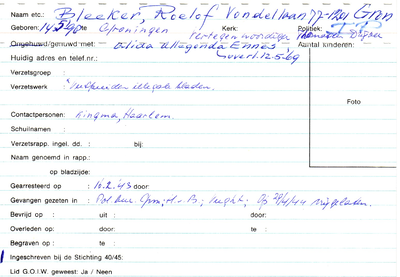 Naam etc.: Bleeker, Roelof Vondellaan 77-1201 Gron
Geboren: te Groningen Kerk: Politiek:
Ongehuwd/gehuwd met: Alida Allegonda Ennes Aantal kinderen:
Huidig adres en telef.nr.: overl. 12-5-'69
Verzetsgroep :
Verzetswerk : illegale bladen.
Foto
Contactpersonen: Kingma, Haarlem.
Schuilnamen :
Verzetsrapp. ingel. dd. : bij:
Naam genoemd in rapp.:
op bladzijde:
Gearresteerd op : 10.2.'43 door:
Gevangen gezeten in : Pol. bur. Gron; H.v.B.; Vught; Op 29/4/44 vrijgelaten.
Bevrijd op : uit : door:
Overleden op: door: te :
Begraven op : te :
Ingeschreven bij de Stichting 40/45:
Lid G.O.I.W. geweest: Ja / Neen